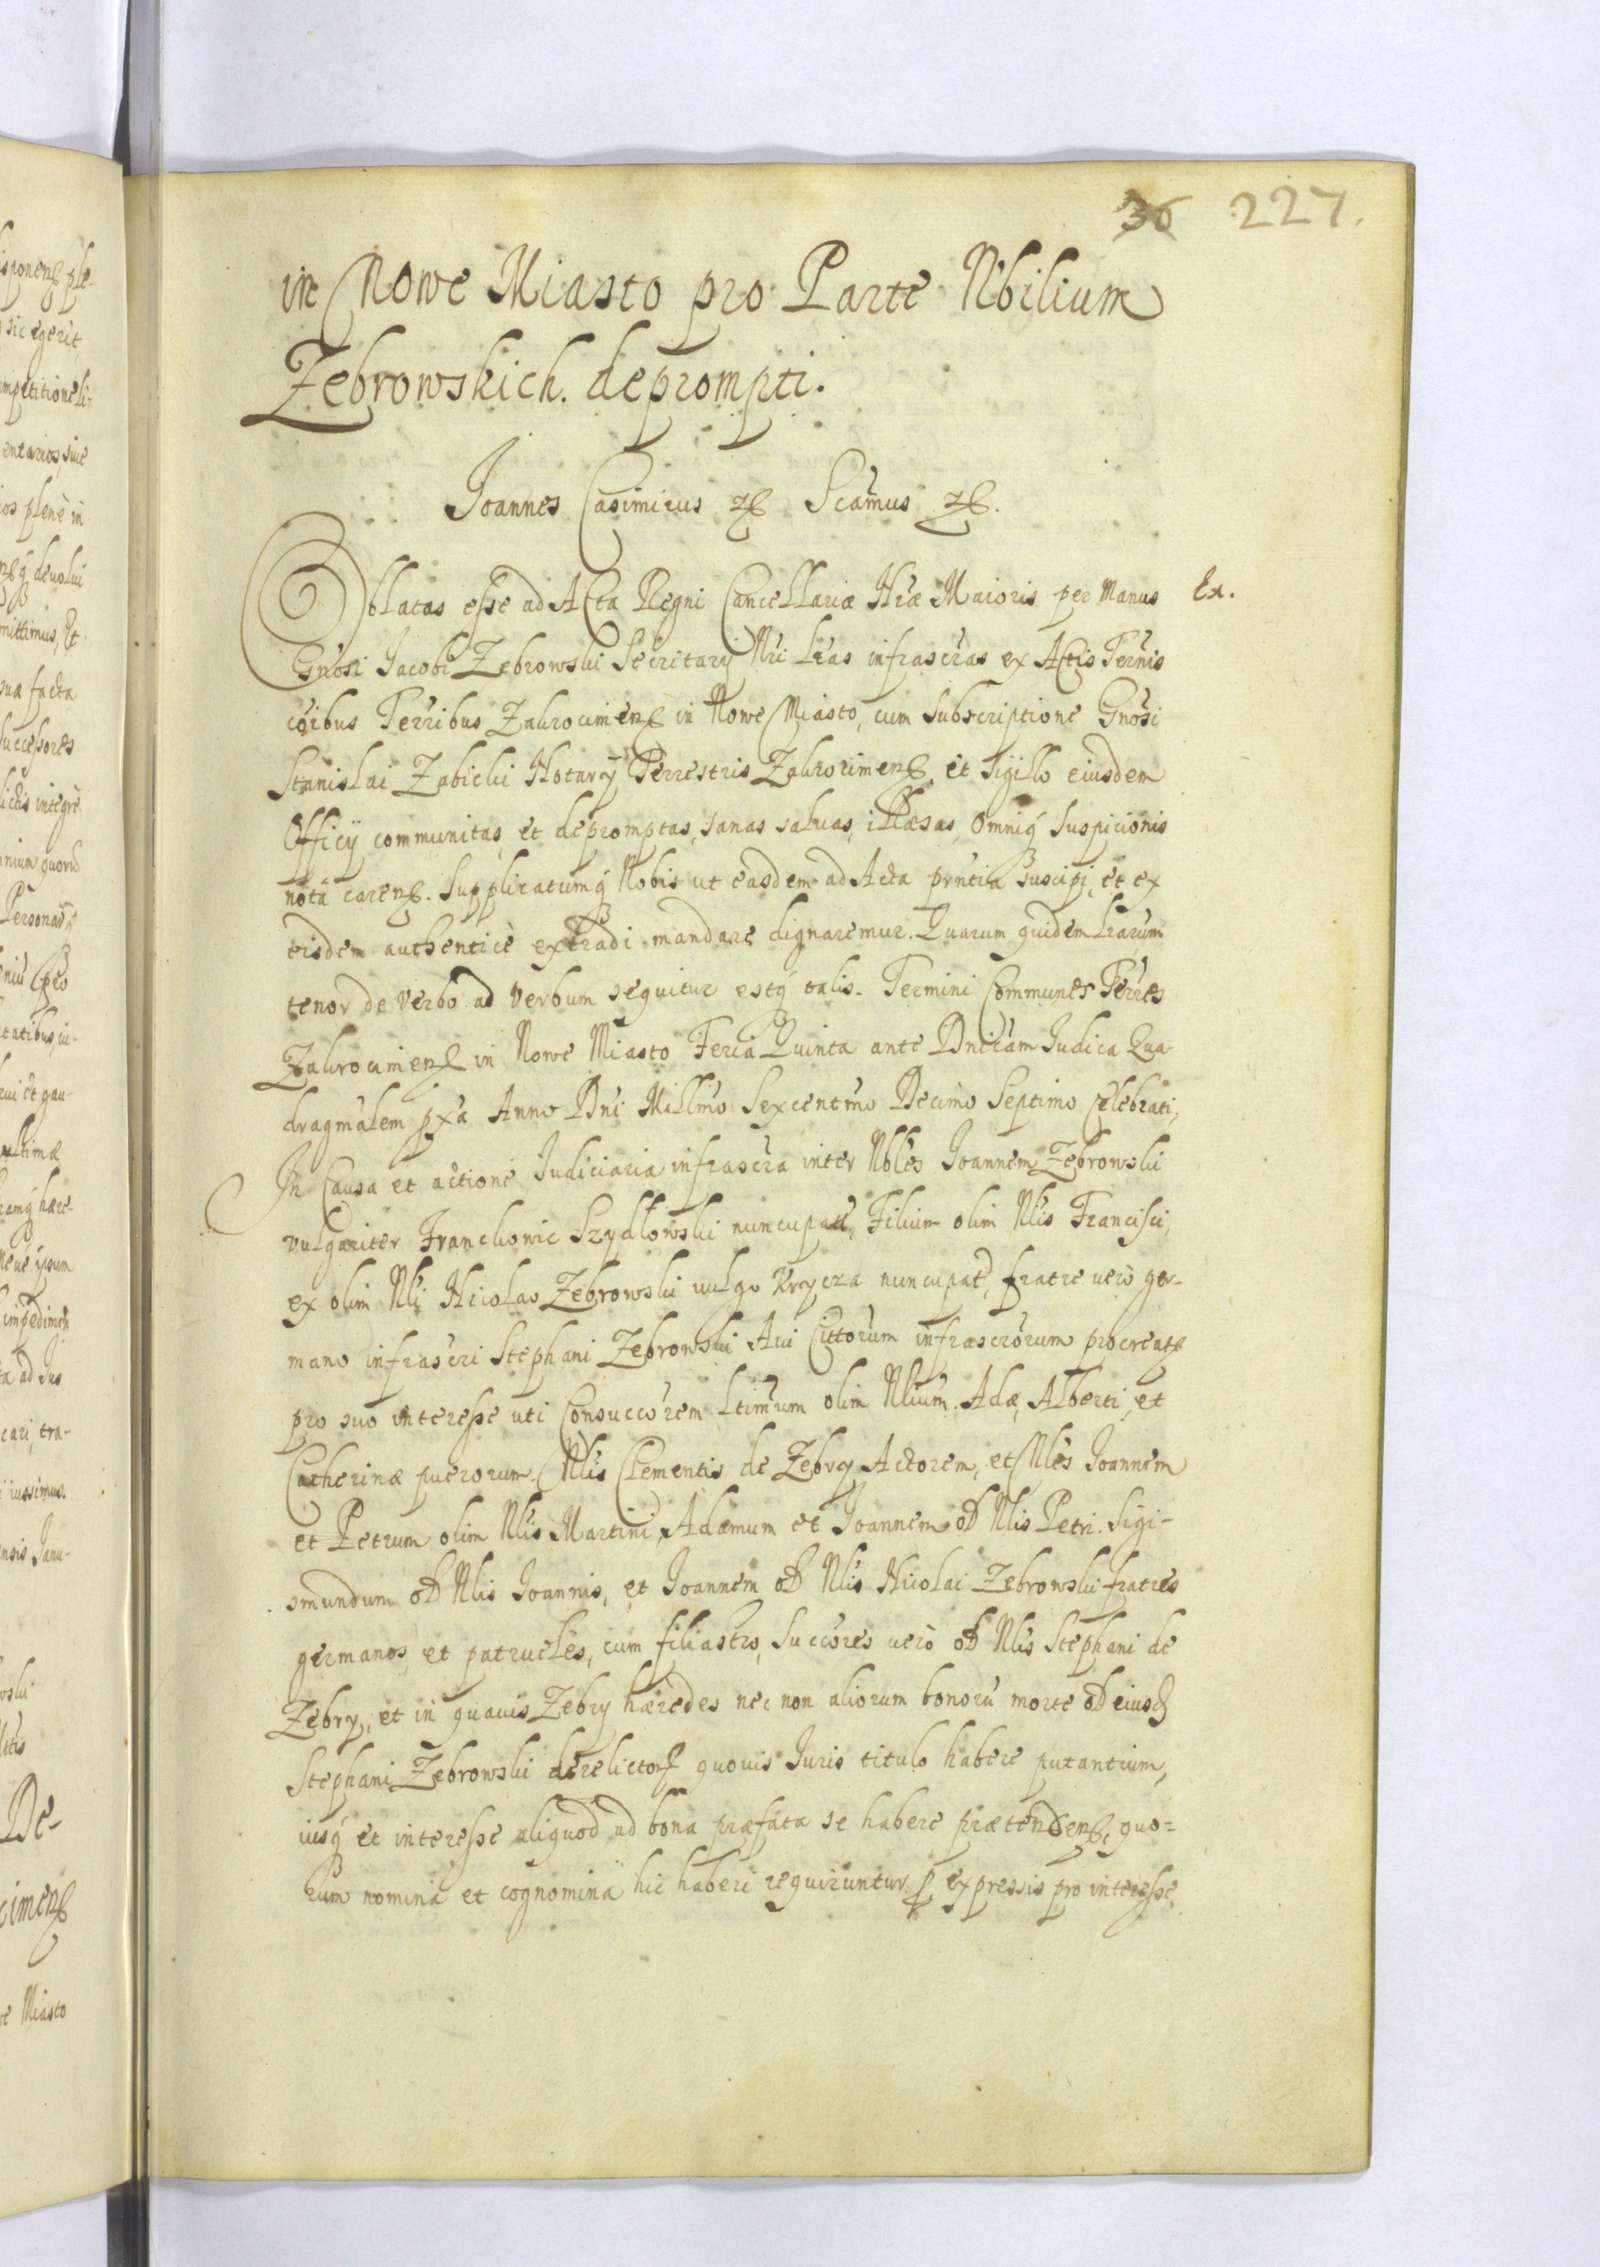 36 227.
in Nowe Miasto pro Parte Nbilium
Zebrowskich. deprompti.
Joannes Casimirus Scamus
Oblatas esse ad Acta Regni Cancellariæ Nræ Maioris per Manus Ex.
Gnosi Jacobi Zebrowski Secretarÿ Nri Lras infrascras ex Actis Ternis
coibus Terribus Zakrocimens in Nowe Miasto, cum Subscriptione Gnosi
Stanislai Zabicki Notarÿ Terrestris Zakrocimens et Sigillo eiusdem
Officÿ communitas, et depromptas, sanas saluas, illæsas, Omniq Suspicionis
nota carens. Supplicatumq Nobis ut easdem ad Acta prntia Suscipi, et ex
eisdem authenticè extradi mandare dignaremur. Quarum quidem Lrarum
tenor de verbo ad verbum sequitur estq talis. Termini Communes Terres
Zakrocimens in Nowe Miasto Feria Quinta ante Dnicam Judica Qua-
dragmalem pxa Anno Dni Millmo Sexcentmo Decimo Septimo Celebrati,
In Causa et actione Judiciaria infrascra inter Nbles Joannem Zebrowski
vulgariter Franckowic Szydłowski nuncupatt, Filium olim Nlis Francisci,
ex olim Nli Nicolao Zebrowski vulgo Krycza nuncupat, fratre verò ger-
mano infrascri Stephani Zebrowski Aui Cittorum infrascrorum procreat
pro suo interesse uti Consuccorem Ltimum olim Nlium. Adæ, Alberti, et
Catherinæ puerorum. Nlis Clementis de Zebry Actorem, et Nles Joannem
et Petrum olim Nlis Martini, Adamum et Joannem oD Nlis Petri. Sigi-
smundum oD Nlis Joannis, et Joannem oD Nlis Nicolai Zebrowski fratres
germanos, et patrueles, cum filiastro, Succores verò oD Nlis Stephani de
Zebry, et in quauis Zebry hæredes nec non aliorum bonoru morte oD eiusd
Stephani Zebrowski derelictor quouis Juris titulo habere putantium,
iusq et interesse aliquod ad bona præfata se habere prætendens, quo=
rum nomina et cognomina hic haberi requiruntur p expressis pro interesse